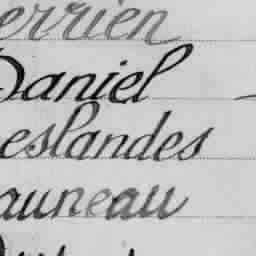 errien
Daniel
eslandes
auneau